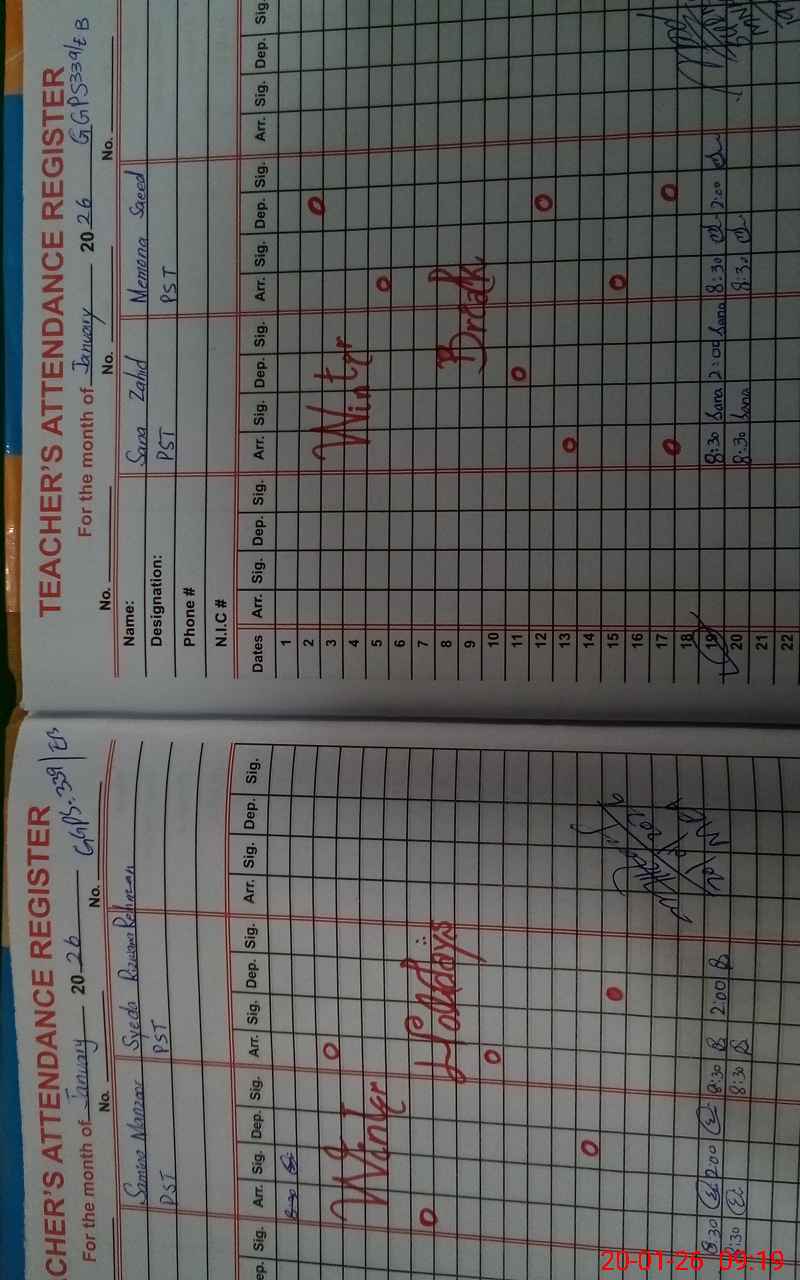 CHER'S ATTENDANCE REGISTER
For the month of January 2026 GGPS.339/EB
No. No.
Samina Manzoor Syeda Rizwana Rehman
PST PST
ep. Sig. Arr. Sig. Dep. Sig. Arr. Sig. Dep. Sig. Arr. Sig. Dep. Sig.
8:30
Winter Holidays
8:30 2:00 8:30 2:00
8:30 8:30
TEACHER'S ATTENDANCE REGISTER
For the month of January 2026 GGPS339/EB
No. No. No.
Name: Sana Zahid Memona Saeed
Designation: PST PST
Phone #
N.I.C #
Dates Arr. Sig. Dep. Sig. Arr. Sig. Dep. Sig. Arr. Sig. Dep. Sig. Arr. Sig. Dep. Sig.
1
2
3
4
Winter
5
6
7
8
9
Break
10
11
12
13
14
15
16
17
18
19 8:30 Sana 2:00 Sana 8:30 2:00
20 8:30 Sana 8:30
21
22
20-01-26 09:19